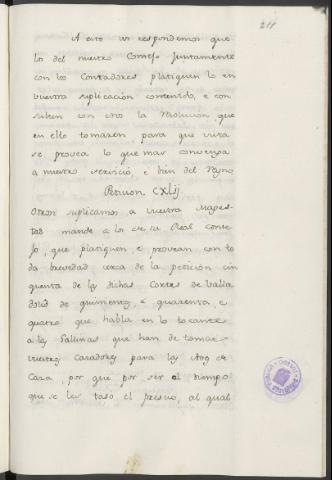 211
A esto vos respondemos que
los del nuestro Consejo Juntamente
con los Contadores platiquen lo en
vuestra suplicación contenido, e con
sulten con nos la resolucion que
en ello tomaren, para que vista
se provea lo que mas convenga
a nuestro servicio, e bien del Reyno
Peticion CXLij
Otrosi suplicamos a vuestra Mages-
tad mande a los de su Real Conse-
jo, que platiquen e provean con to
da brevedad cerca de la peticion cin
quenta de las dichas Cortes de Valla
dolid de quinientos, e quarenta, e
quatro que habla en lo tocante
a las Gallinas que han de tomar
vuestros Cazadores para las Aves de
Caza, por que por ser el tiempo
que se les taso el precio, al qual